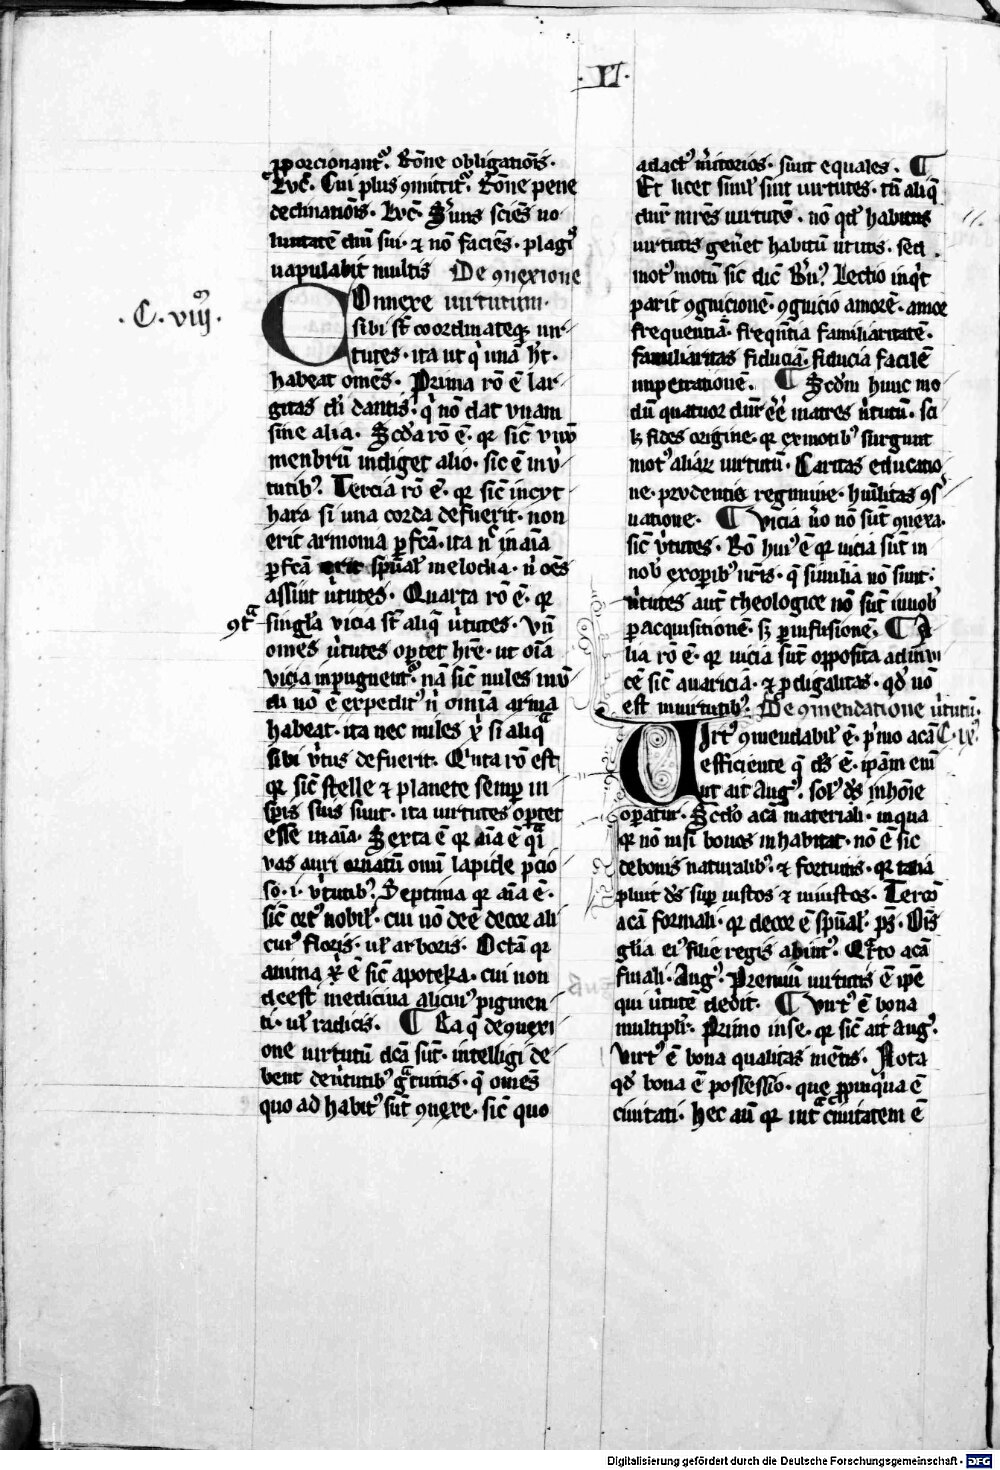 .II.
proporcionantᵘ. Rōne obligatiōis.
Luc̄. Cui plus ꝯmittitᵘ. Rōne pene
declinatiōis. Luc̄. Seruus sciēs uo
luntatē dn̄i sui. ⁊ nō faciēs. plagꝰ
uapulabit multis De ꝯnexione
.C. viijᵐ.
COnnexe uirtutum.
sibi st̄ coordinateqꝫ uir
tutes. ita ut qͥ unā hꝫt.
habeat omēs. Prima rō ē lar
gitas dei dantis. qͥ nō dat vnam
sine alia. Scd̄a rō ē. qꝛ sic̄ vnū
menbrū indiget alio. sic ē in v̓
tutibꝰ. Tercia rō ē. qꝛ sic̄ in cyt
hara si una corda defuerit. non
erit armonia ꝑfcā. ita nͨ in aīa
ꝑfcā erit sp̄ual' melodia. nͥ oēs
assint v̓tutes. Quarta rō ē. qꝛ
ꝯtᵃ
singl'a vicia st̄ aliq̄ v̓tutes. Vn̄
omēs v̓tutes oꝑtet hr̄e. ut oīa
vicia inpugnentᵘ. nā sic̄ miles in v̄
du nō ē expeditꝰ nͥ omīa arma
habeat. ita nec miles xͥ si aliqᵃ
sibi v̓tus defuerit. Qͥnta rō est
qꝛ sic̄ stelle ⁊ planete semꝑ in
sp̄is suis sunt. ita uirtutes oꝑtet
esse in aīa. Sexta ē qꝛ aīa ē qͣi
vas auri ornatū omī lapide p̄cio
so. i. v̓tutibꝰ. Septima qꝛ aīa ē.
sic̄ ortꝰ nobil'. cui nō deē decor ali
cuiꝰ floris. ul' arboris. Octā qꝛ
anima xͥ ē sic̄ apoteka. cui non
deest medicina alicuiꝰ pigmen
ti. ul' radicis. ¶ Ea q̄ de ꝯnexi
one uirtutū dc̄a sūt. intelligi de
bent de v̓tutibꝰ gᵃtuitis. q̄ omēs
quo ad habitꝰ sūt ꝯnexe. sic̄ quo
ad actꝰ m̓itorios. sunt equales. ¶
Et licet simil' sint uirtutes. tn̄ aliq̄
dn̄r mr̄es uirtutū. nō qd̓ habitus
uirtutis gen̓et habitū v̓tutis. sed
motꝰ motū sic dic̄ Bern̓. Lectio inqͥt
parit ꝯgnicionē. ꝯgnicio amorē. amor
frequentiā. freqn̄tia familiaritatē.
familiaritas fiduciā. fiducia facilē
impetrationē. ¶ Scd̄m hunc mo
dū quatuor dn̄r eē matres v̓tutū. sci
lꝫ fides origine. qꝛ ex motibꝰ surgunt
motꝰ aliaꝝ uirtutū. Caritas educatio
ne. prudentia regimine. humilitas ꝯs̓
uatione. ¶ Vicia v̓o nō sūt ꝯnexa.
sic̄ v̓tutes. Rō huiꝰ ē qꝛ uicia sūt in
nobꝫ ex oꝑibꝰ nr̄is. q̄ similia nō sunt.
v̓tutes aut̄ theologice nō sūt in nobꝫ
ꝑ acquisitionē. sꝫ ꝑ infusionē. ¶ A
lia rō ē. qꝛ uicia sūt opposita ad inui
cē sic̄ auaricia. ⁊ ꝓdigalitas. qd̓ nō
est in uirtutibꝰ. De ꝯmendatione v̓tutū.
C. ix.
VIrtꝰ ꝯmendabil' ē. pͥmo a cāa
efficiente q̄ dꝰ ē. ip̄am enī
ut ait Augꝰ. solꝰ dꝰ in hoīe
operatur. Scd̄o a cā materiali. in qua
qꝛ nō nisi bonos inhabitat. nō ē sic
de bonis naturalibꝰ. ⁊ fortunis. qꝛ talia
pluit dꝰ suꝑ iustos ⁊ iniustos. Tercō
a cā formali. qꝛ decor ē sp̄ual'. ps̄. Oīs
gl'ia eiꝰ filie regis ab intꝰ. Qᵃrto a cā
finali. Augꝰ. Premiū uirtutis ē ip̄e
qui v̓tutē dedit. ¶ Virtꝰ ē bona
multipl'r. Primo in se. qꝛ sic̄ ait Augꝰ.
Virtꝰ ē bona qualitas mētis. Nota
qd̓ bona ē possessio. que ꝓpinqua ē
ciuitati. hec aut̄ qꝛ intᵃ ciuitatem ē
Digitalisierung gefördert durch die Deutsche Forschungsgemeinschaft - DFG